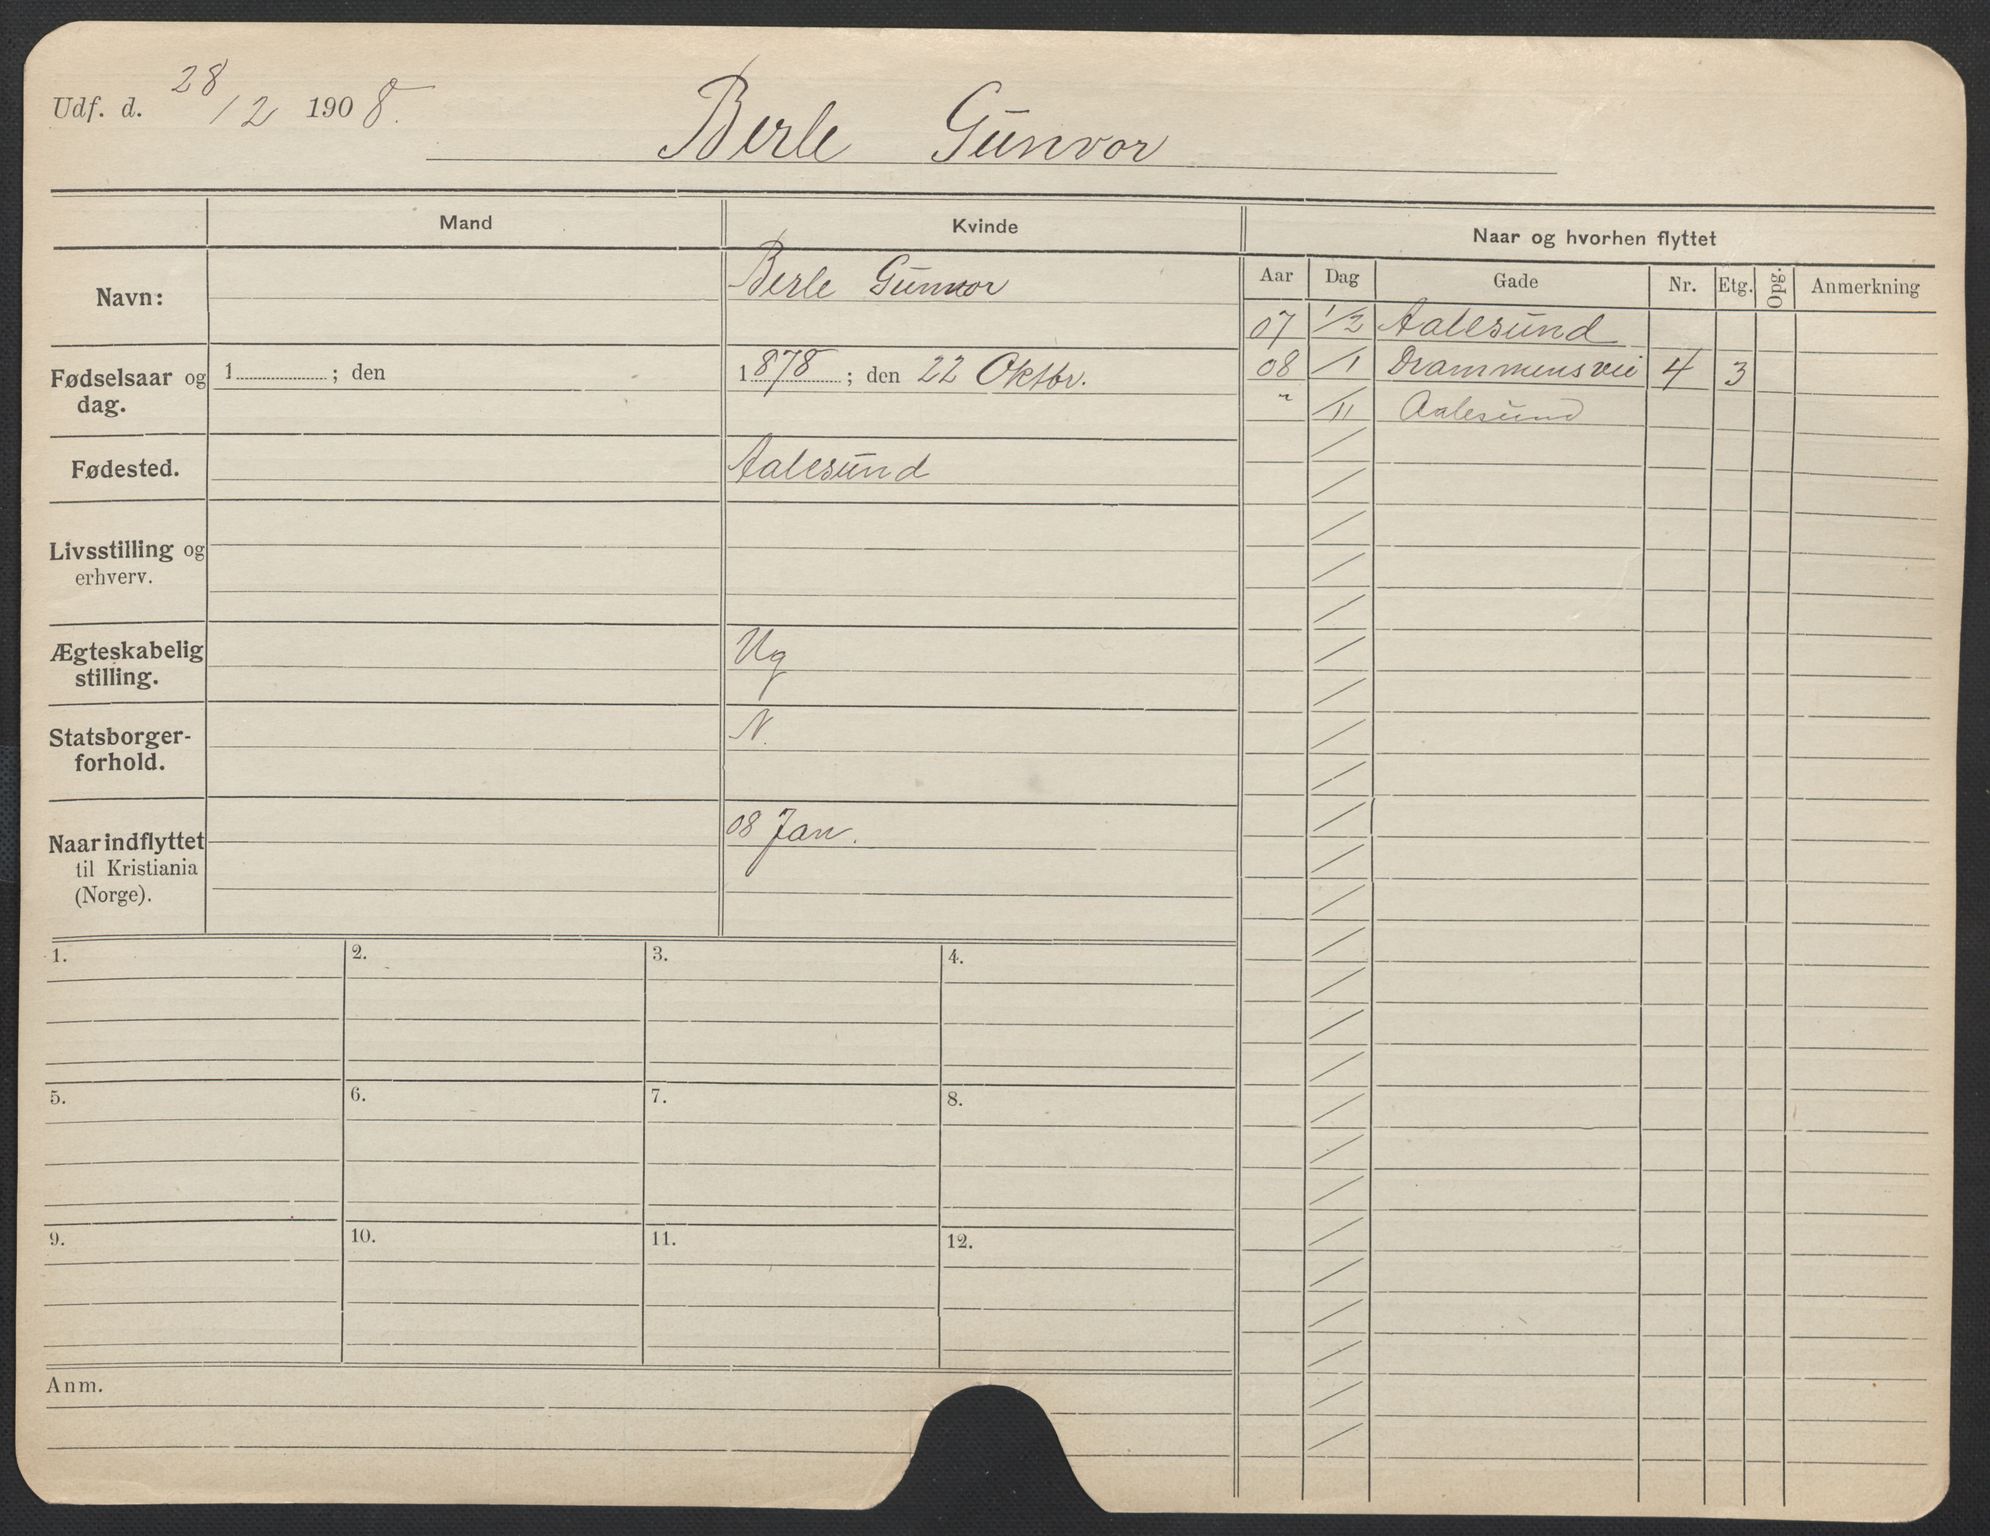 Udf. d. 28/12 1908.
Berle Gunvor
Mand Kvinde Naar og hvorhen flyttet
Aar Dag Gade Nr. Etg. Opg. Anmerkning
Navn: Berle Gunvor
07 1/2 Aalesund
Fødselsaar og dag. 1 ; den 1878 ; den 22 Oktbr.
08 /1 Drammensvei 4 3
" /11 Aalesund
Fødested. Aalesund
Livsstilling og
erhverv.
Ægteskabelig Ug
stilling.
Statsborger- N.
forhold.
Naar indflyttet 08 Jan.
til Kristiania
(Norge).
1. 2. 3. 4.
5. 6. 7. 8.
9. 10. 11. 12.
Anm.